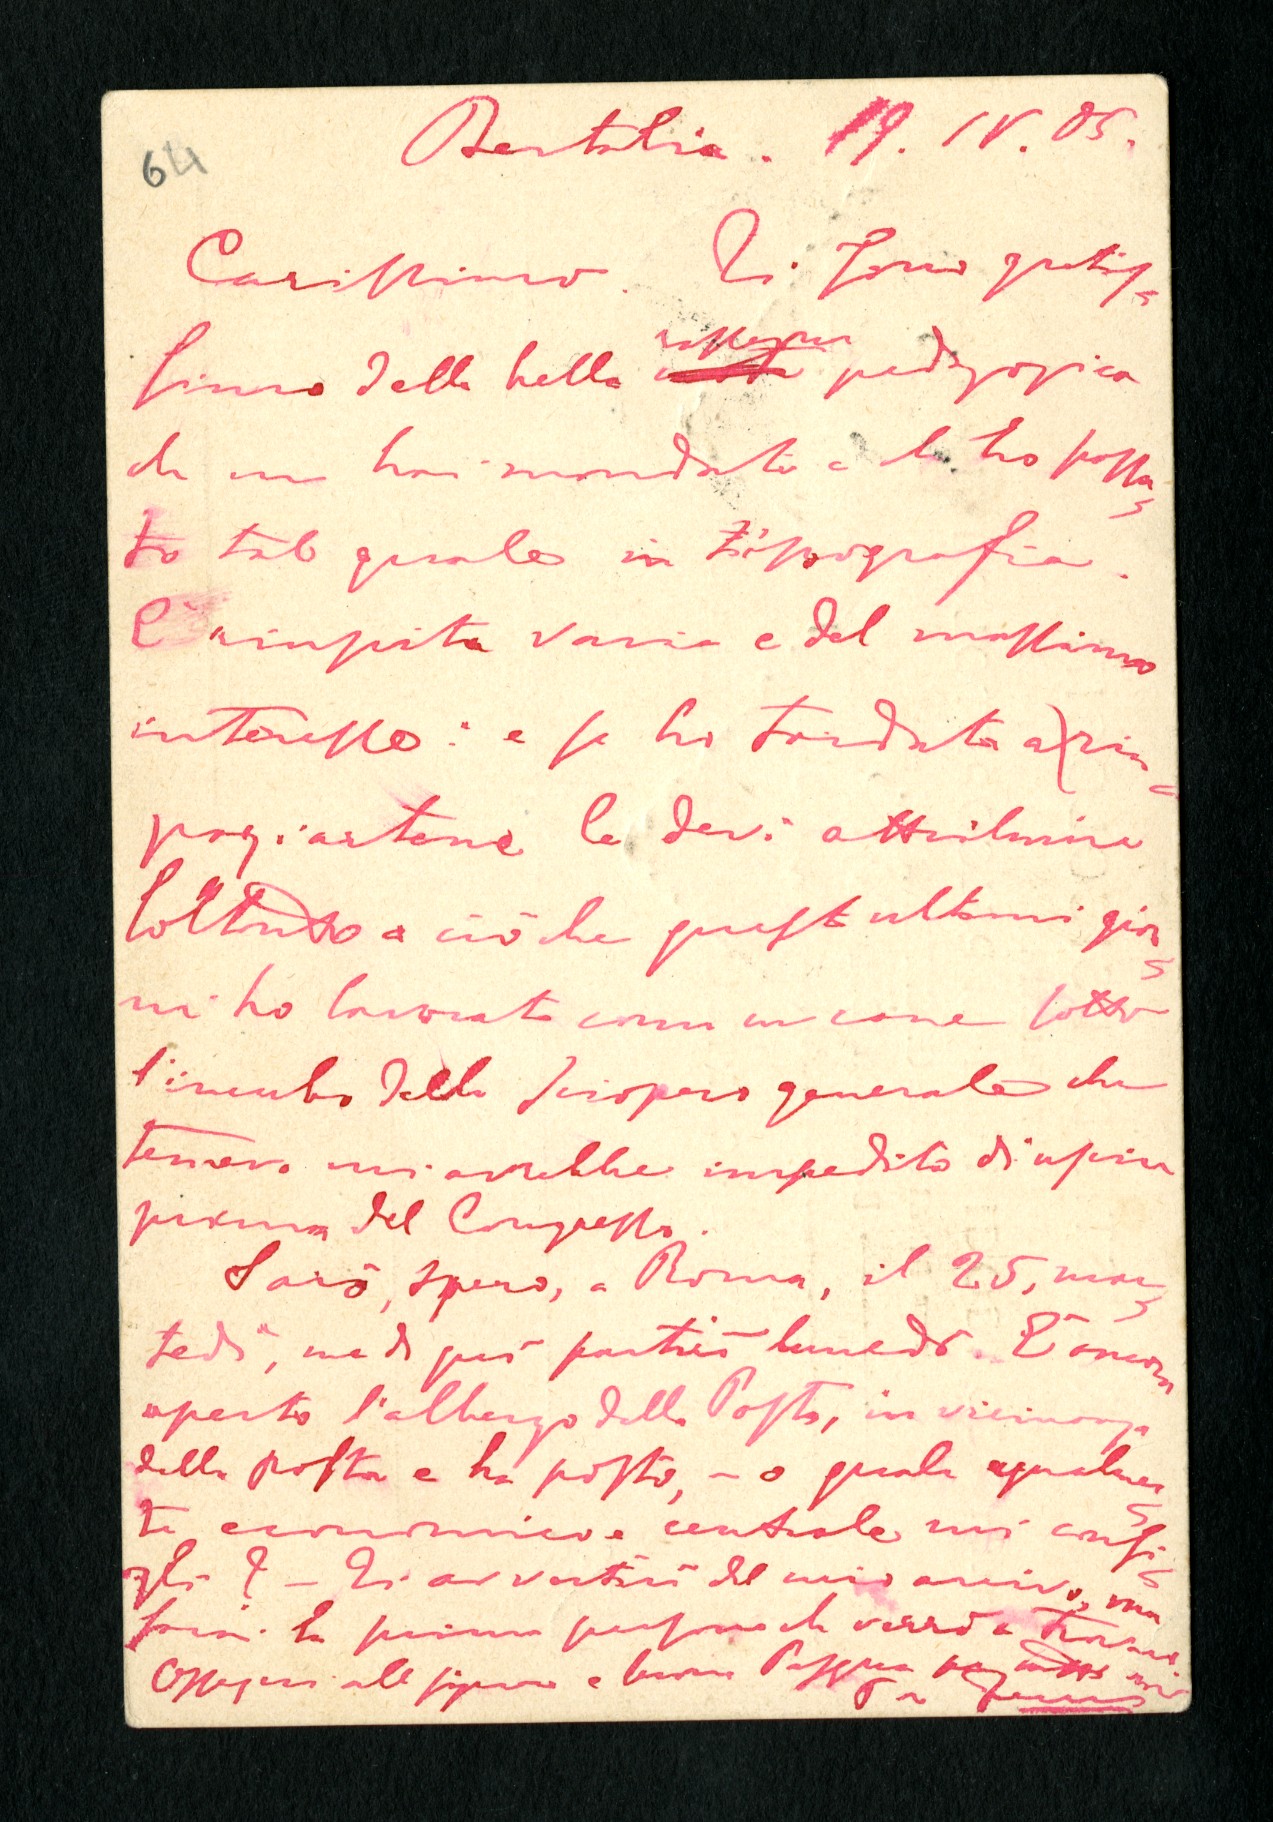 64
Bertalia. 19. IV. 05.
Carissimo. Ti sono gratis-
simo della bella rassegna pedagogica
che mi hai mandato e che ho passa-
to tale quale in tipografia.
È riuscita varia e del massimo
interesse: e se ho tardato a rin-
graziartene lo devi attribuire
soltanto a ciò che questi ultimi gior-
ni ho lavorato come un cane sotto
l'incubo dello sciopero generale che
temevo mi avrebbe impedito di uscire
prima del Congresso.
Sarò, spero, a Roma, il 25, mar-
tedì, se di qui partirò lunedì. È ancora
aperto l'albergo della Posta, in vicinanza
della posta e ha posto, – o quale egualmen-
te economico e centrale mi consi-
gli? – Ti avvertirò del mio arrivo, ma
sarai la prima persona che verrò a trovare.
Ossequi alla signora e buona Pasqua